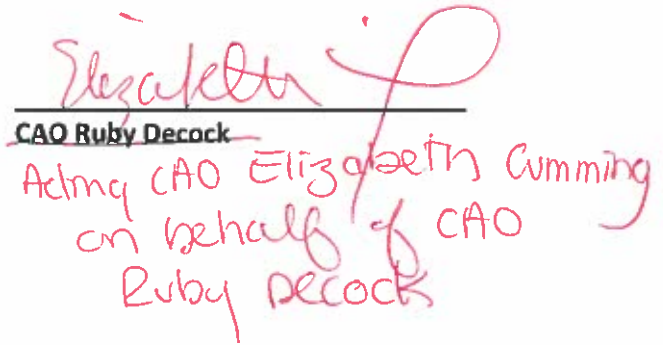 Elizabeth
CAO Ruby Decock
Acting CAO Elizabeth Cumming
on behalf of CAO
Ruby Decock